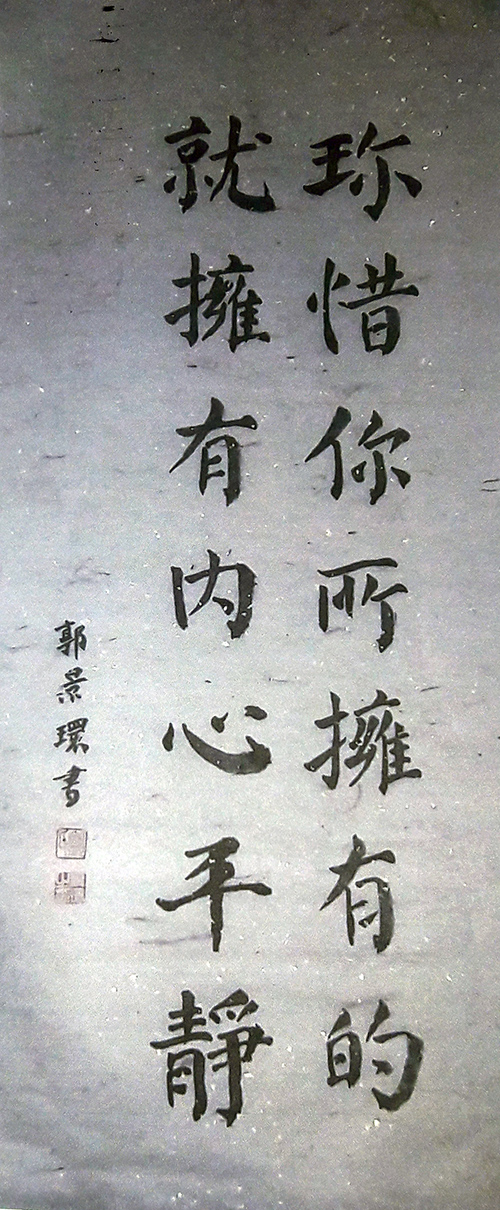 珎惜你所擁有的
就擁有内心平靜
郭景環書